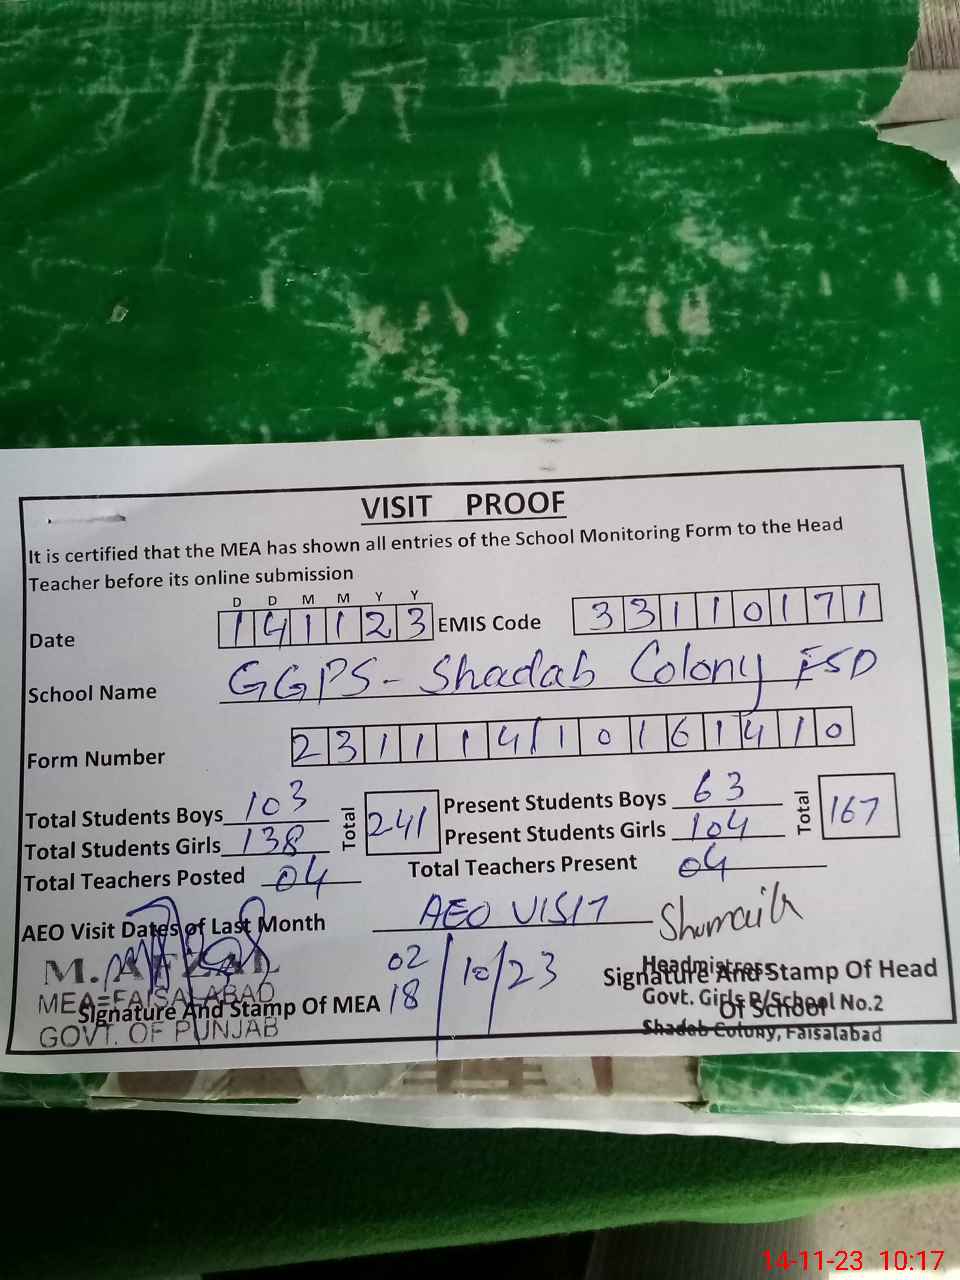 VISIT PROOF
It is certified that the MEA has shown all entries of the School Monitoring Form to the Head
Teacher before its online submission
D D M M Y Y
Date 1 4 1 1 2 3 EMIS Code 3 3 1 1 0 1 7 1
School Name GGPS - Shadab Colony FSD
Form Number 2 3 1 1 1 4 1 1 0 1 6 1 4 1 0
Total Students Boys 103 Total 241 Present Students Boys 63 Total 167
Total Students Girls 138 Present Students Girls 104
Total Teachers Posted 04 Total Teachers Present 04
AEO Visit Dates of Last Month AEO VISIT Shumaila
02
18 / 10 / 23
M. AFZAL
MEA-FAISALABAD
GOVT. OF PUNJAB
Signature And Stamp Of MEA
Signature And Stamp Of Head
Of School
Headmistress
Govt. Girls P/School No.2
Shadab Colony, Faisalabad
14-11-23 10:17